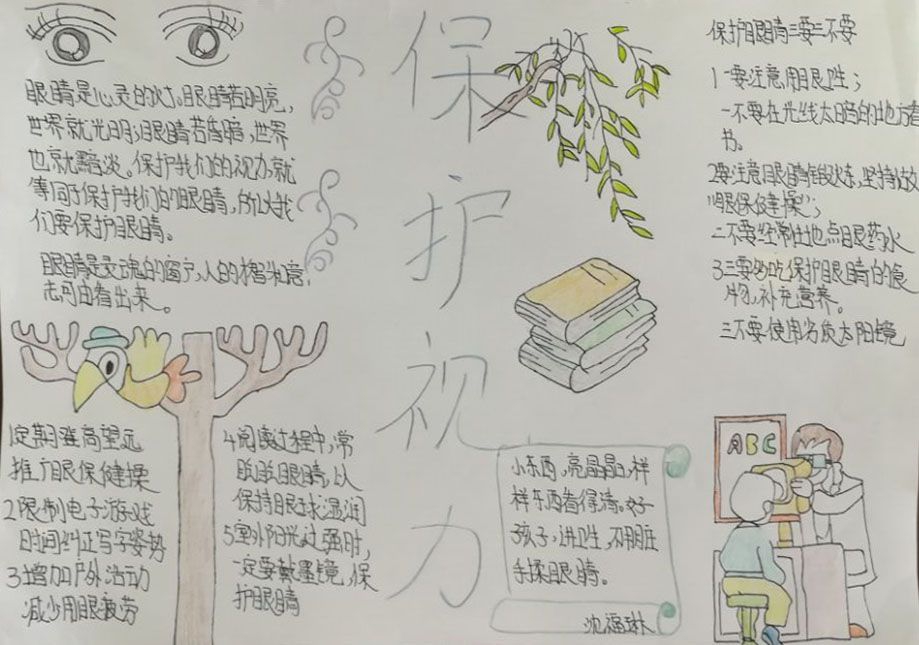 保护视力
眼睛是心灵的灯。眼睛若明亮,
世界就光明;眼睛若昏暗,世界
也就黯淡。保护我们的视力,就
等同于保护我们的眼睛,所以我
们要保护眼睛。
眼睛是灵魂的窗户,人的才智和意
志可由看出来。
1定期登高望远
推广眼保健操
2限制电子游戏
时间纠正写字姿势
3增加户外活动
减少用眼疲劳
4阅读过程中,常
眨眨眼睛,以
保持眼球湿润
5室外阳光过强时,
一定要戴墨镜,保
护眼睛
保护眼睛三要三不要
1一要注意用眼卫生;
一不要在光线太暗的地方看
书。
2要注意眼睛锻炼,坚持做
“眼保健操”;
二不要经常性地点眼药水
3三要多吃保护眼睛的食
物,补充营养。
三不要使用劣质太阳镜
ABC
小东西,亮晶晶,样
样东西看得清。好
孩子,讲卫生,不用脏
手揉眼睛。
沈福琳